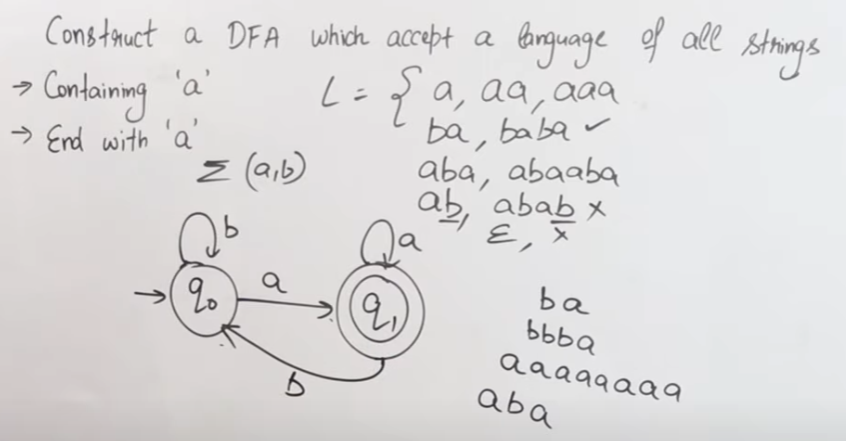 Construct a DFA which accept a language of all strings
→ Containing 'a'
→ End with 'a'
Σ (a,b)
L = { a, aa, aaa
ba, baba ✓
aba, abaaba
ab, abab ×
ε, ×
b
a
q₀
a
q₁
b
ba
bbba
aaaaaaaa
aba